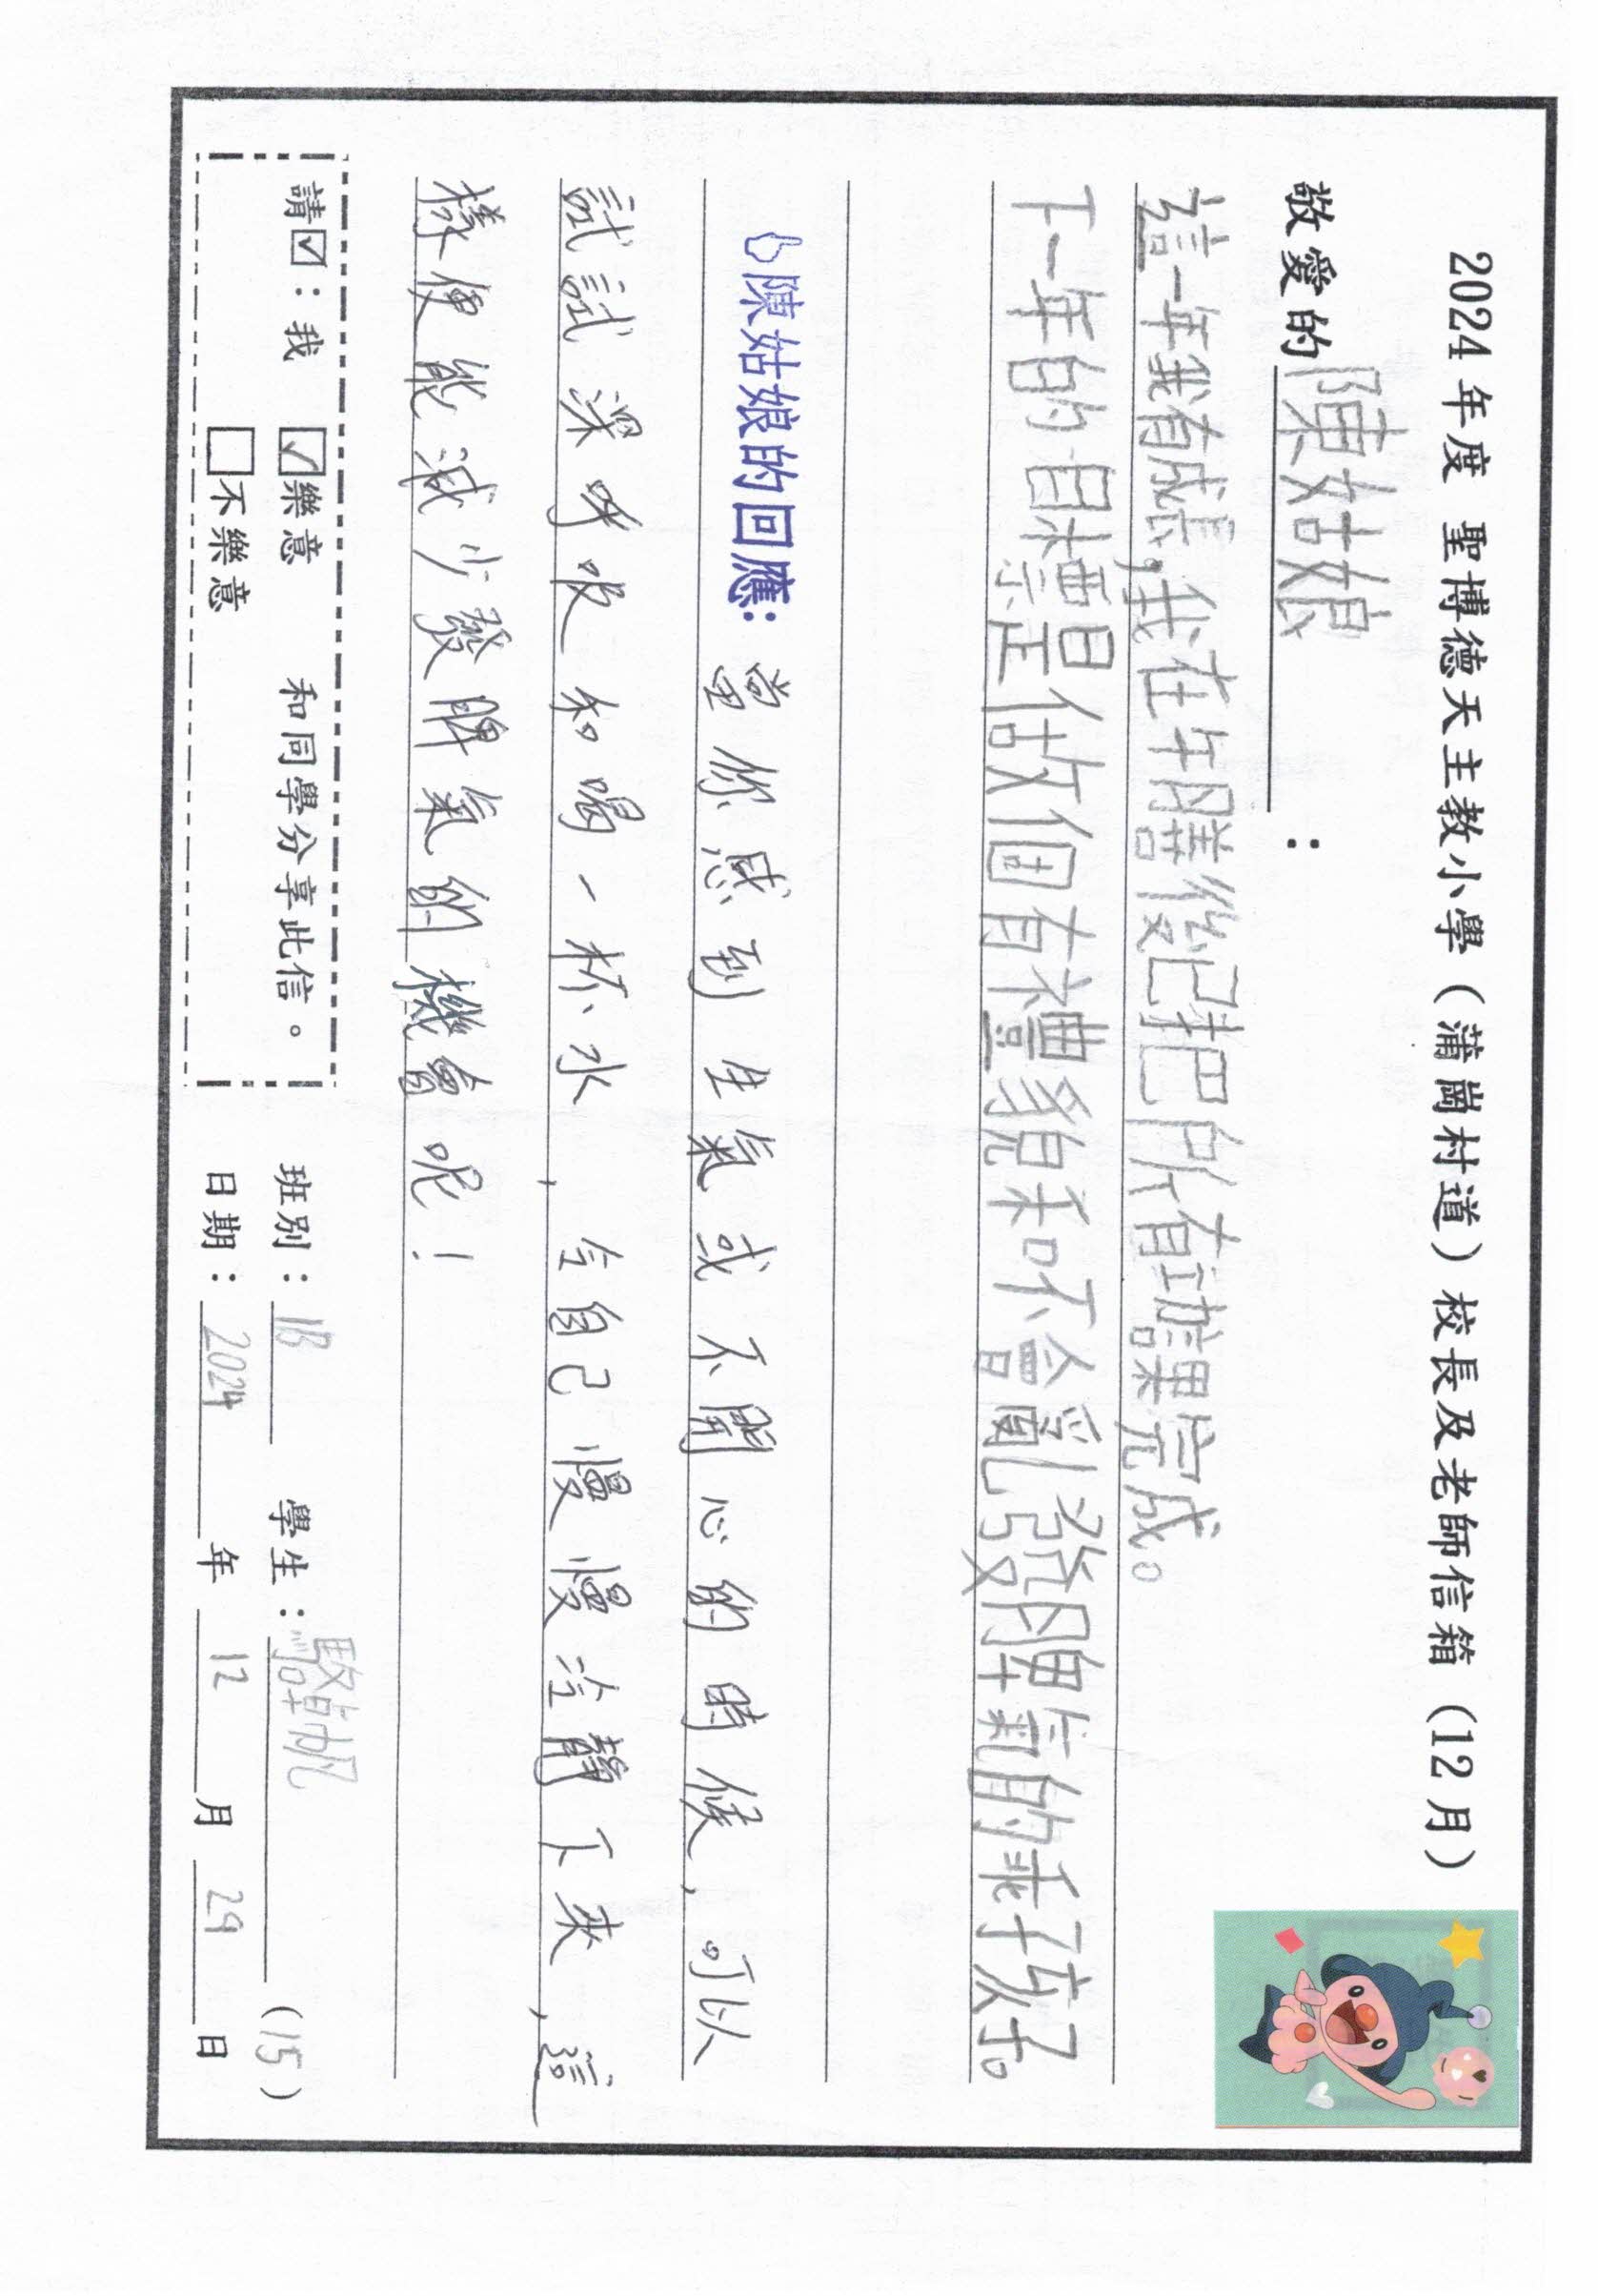 2024 年度 聖博德天主教小學（蒲崗村道）校長及老師信箱（12 月）
敬愛的陳姑娘：
這一年我有感恙，我在午膳後已把所有功課完成。
下一年的目標是做個有禮貌和不會亂發脾氣的乖孩子。
陳姑娘的回應：當你感到生氣或不開心的時候，可以
試試深呼吸和喝一杯水，令自己慢慢冷靜下來，這
樣便能減少發脾氣的機會呢！
請☑：我 ☑樂意 和同學分享此信。
□不樂意
班別：1B 學生：駱卓帆（15）
日期：2024年12月29日